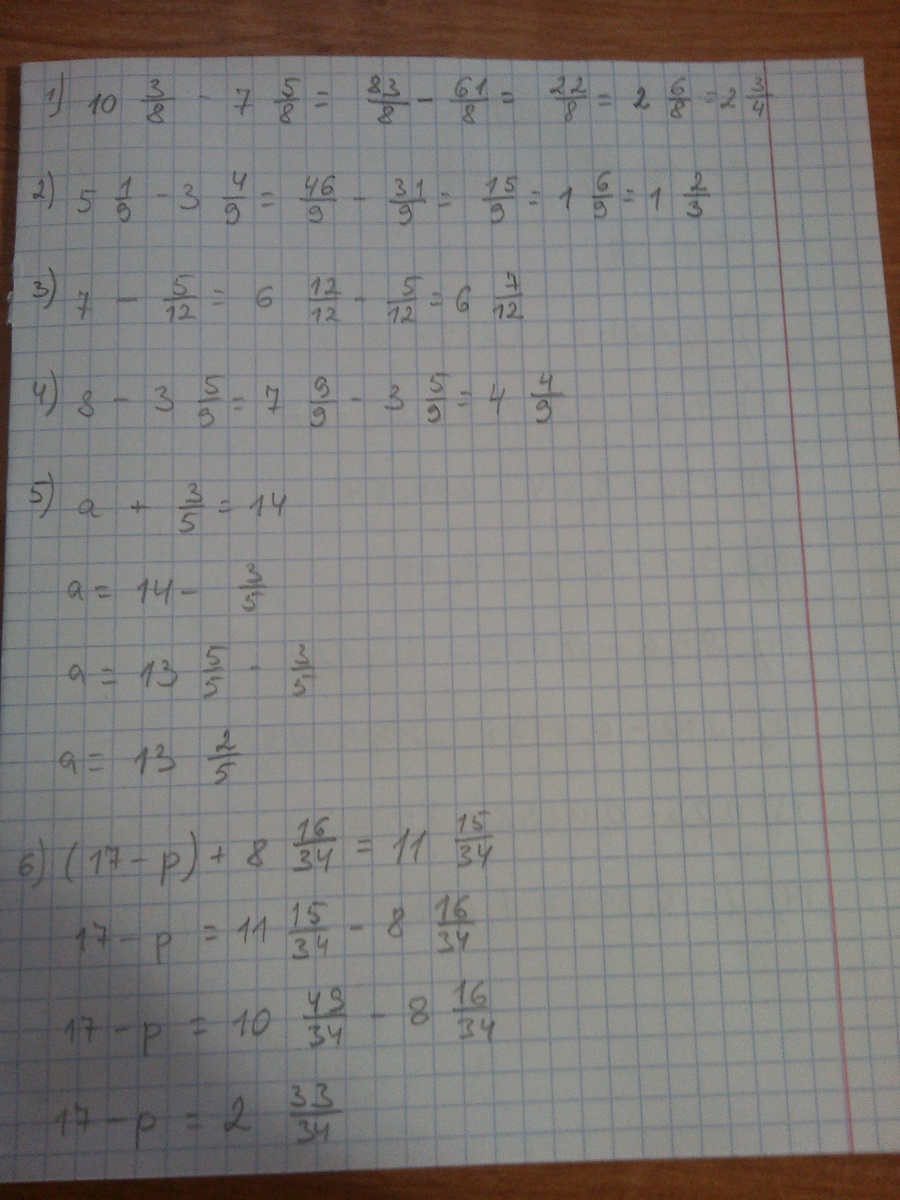 1) 10 3/8 - 7 5/8 = 83/8 - 61/8 = 22/8 = 2 6/8 = 2 3/4
2) 5 1/9 - 3 4/9 = 46/9 - 31/9 = 15/9 = 1 6/9 = 1 2/3
3) 7 - 5/12 = 6 12/12 - 5/12 = 6 7/12
4) 8 - 3 5/9 = 7 9/9 - 3 5/9 = 4 4/9
5) a + 3/5 = 14
a = 14 - 3/5
a = 13 5/5 - 3/5
a = 13 2/5
6) (17 - p) + 8 16/34 = 11 15/34
17 - p = 11 15/34 - 8 16/34
17 - p = 10 49/34 - 8 16/34
17 - p = 2 33/34